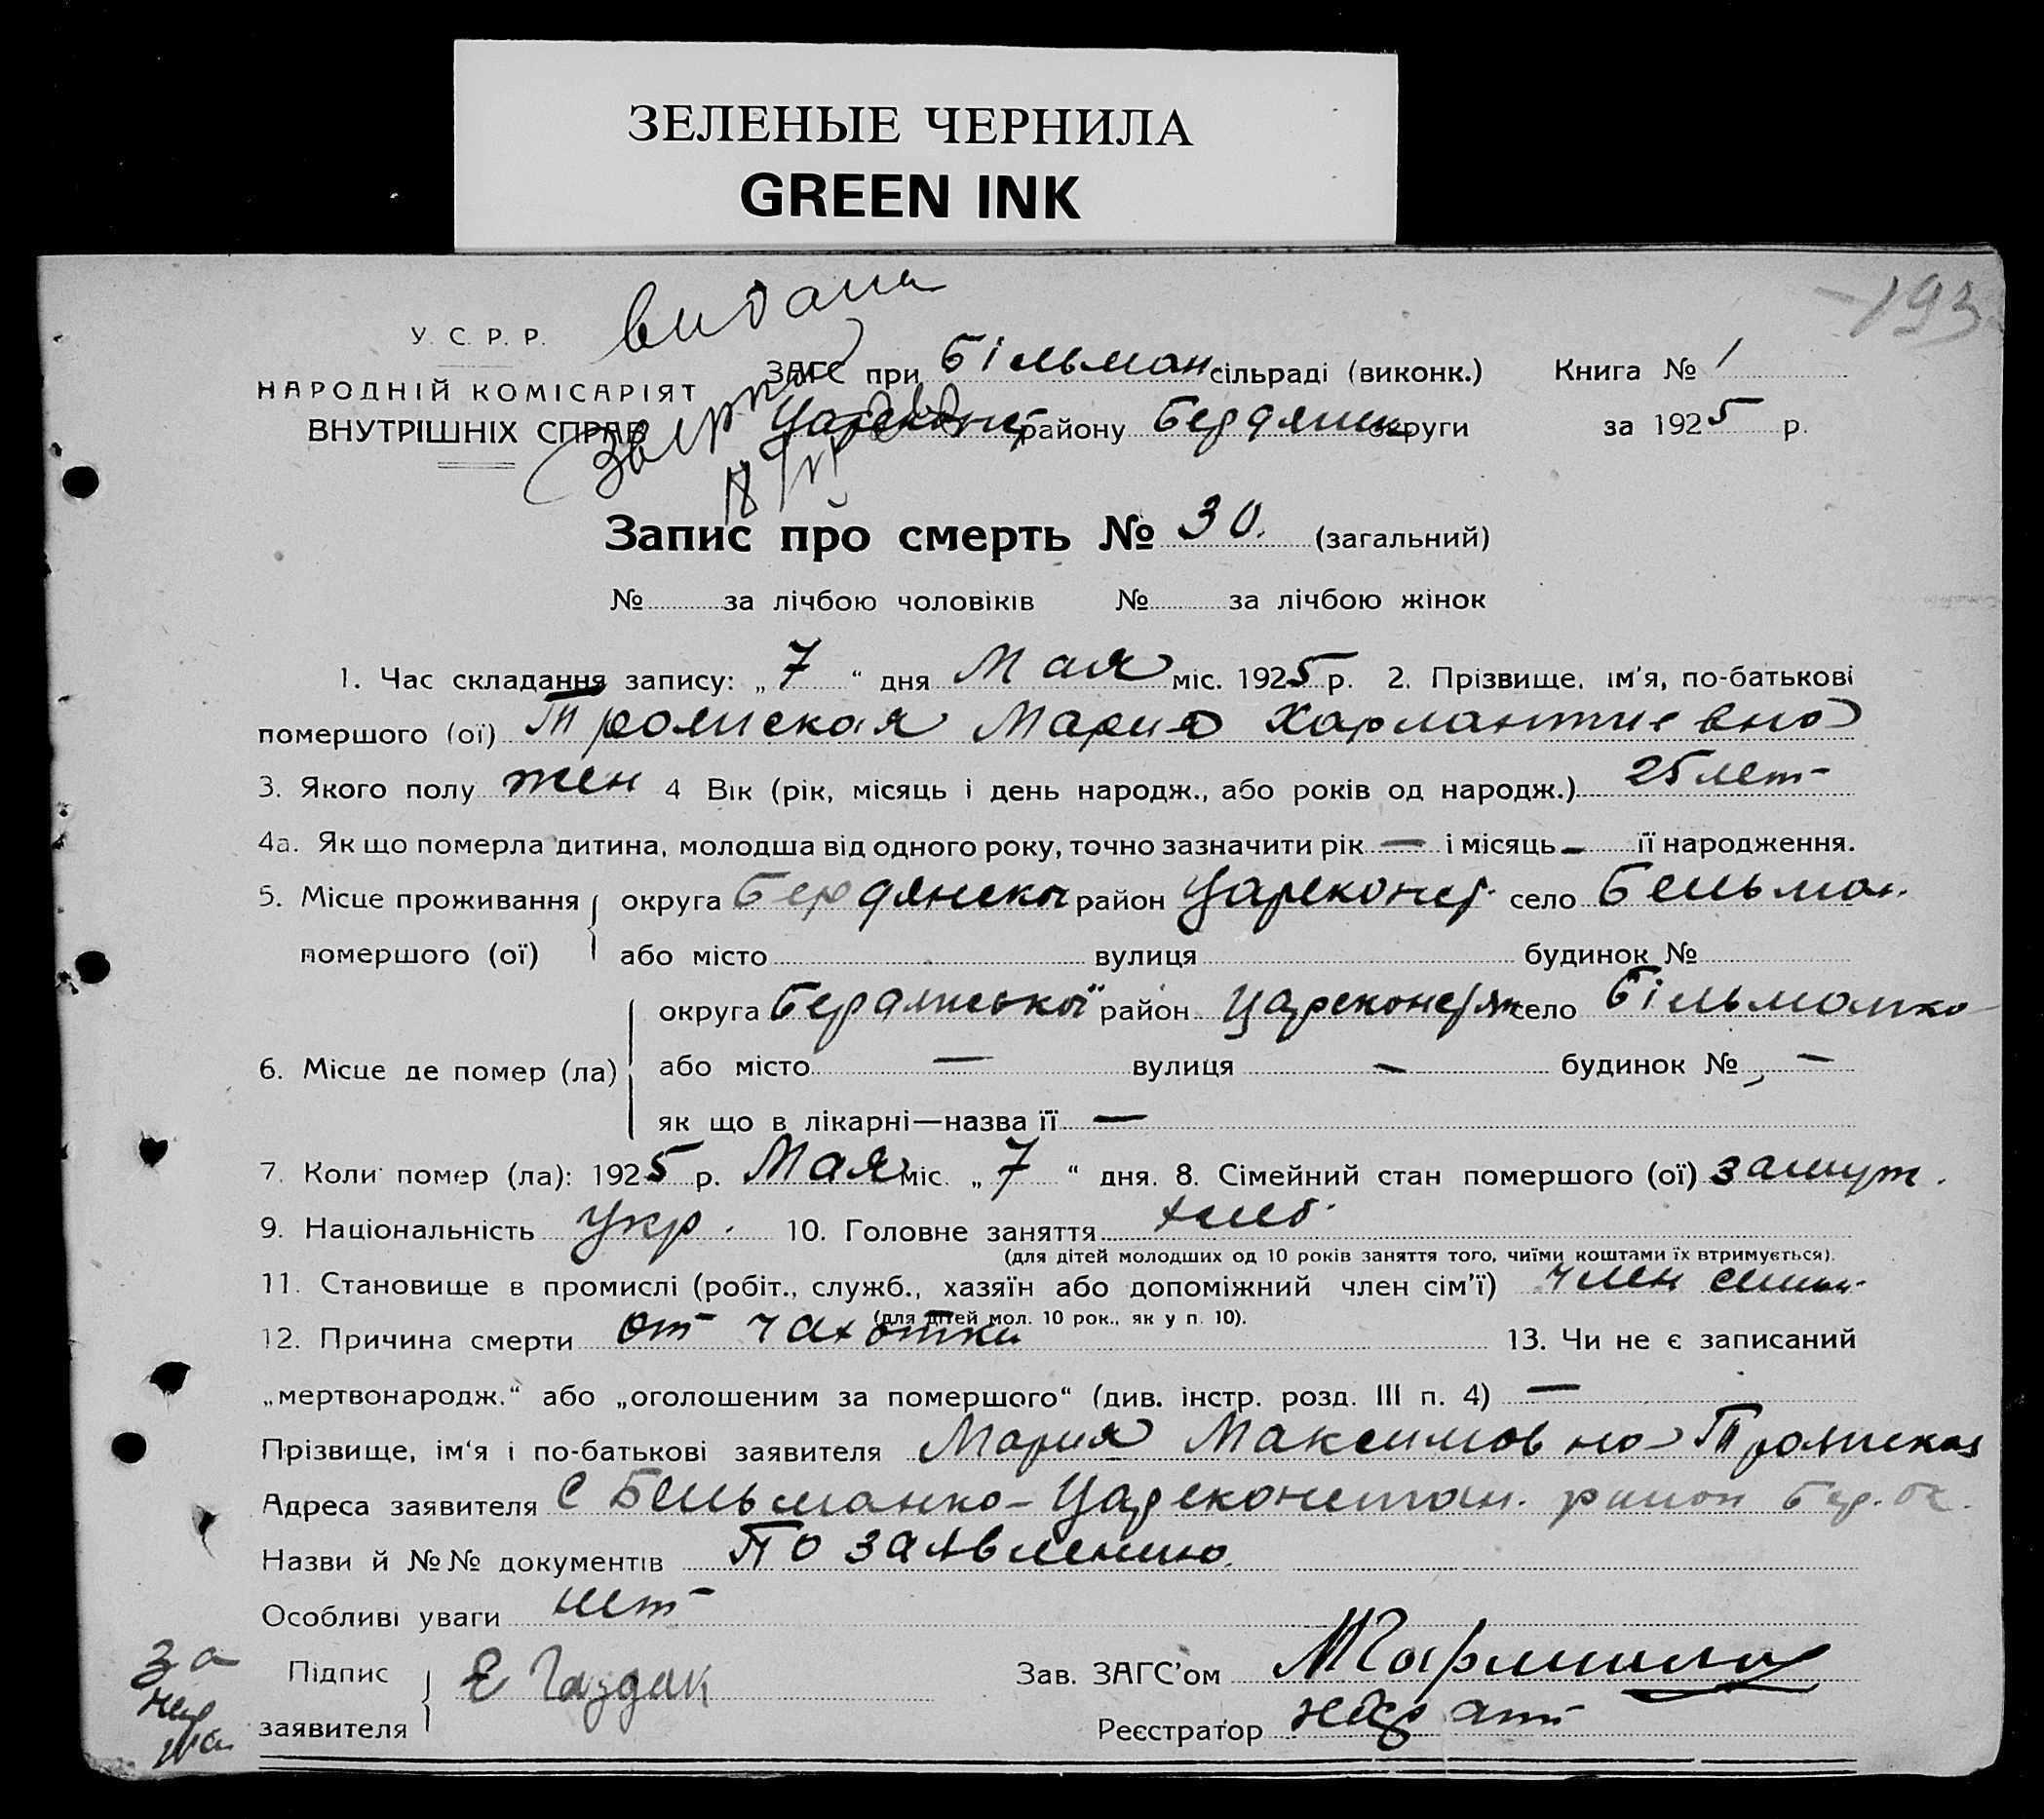 ЗЕЛЕНЫЕ ЧЕРНИЛА
GREEN INK
видана
193
У. С. Р. Р.
НАРОДНІЙ КОМІСАРІЯТ
ВНУТРІШНІХ СПРАВ
ЗАГС при Більман сільраді (виконк.) Книга № 1
району Бердянск округи за 1925 р.
Запис про смерть № 30. (загальний)
№ за лічбою чоловіків № за лічбою жінок
1. Час складання запису: „7“ дня Мая міс. 1925 р. 2. Прізвище, ім'я, по-батькові
помершого (ої) Троянская Мария Харлантиевна
3. Якого полу жен 4 Вік (рік, місяць і день народж., або років од народж.) 25 лет
4а. Як що померла дитина, молодша від одного року, точно зазначити рік — і місяць — її народження.
5. Місце проживання округа Бердянски район Царсконст. село Бельман.
помершого (ої) або місто вулиця будинок №
округа Бердянської район село Більманко
6. Місце де помер (ла) або місто — вулиця — будинок № —
як що в лікарні—назва її —
7. Коли помер (ла): 1925 р. Мая міс. „7“ дня. 8. Сімейний стан помершого (ої) замуж.
9. Національність Укр. 10. Головне заняття хлеб.
(для дітей молодших од 10 років заняття того, чиїми коштами їх втримується).
11. Становище в промислі (робіт., служб., хазяїн або допоміжний член сім'ї) член семьи
(для дітей мол. 10 рок., як у п. 10).
12. Причина смерти от чахотки 13. Чи не є записаний
„мертвонародж.“ або „оголошеним за помершого“ (див. інстр. розд. III п. 4) —
Прізвище, ім'я і по-батькові заявителя Мария Максимовна Троянская
Адреса заявителя с Бельманко-Царсконстан. район Бер. ок.
Назви й №№ документів По заявлению.
Особливі уваги нет
за
Підпис Е Газдак Зав. ЗАГС'ом
заявителя Реєстратор